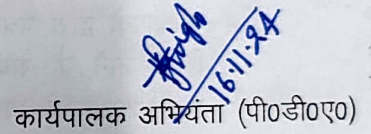 16.11.24
कार्यपालक अभियंता (पी0डी0ए0)